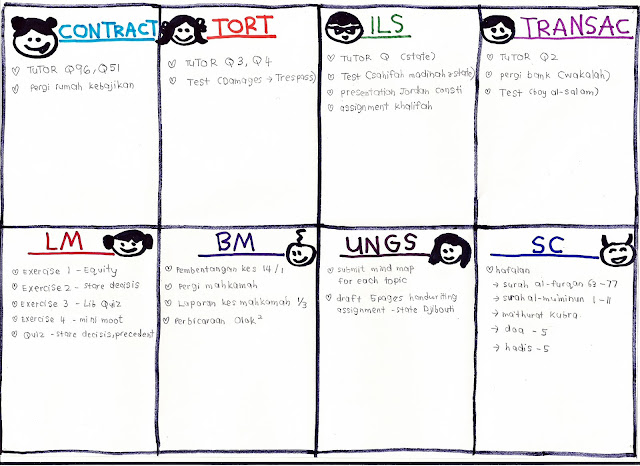 CONTRACT
♡ TUTOR Q96, Q51
♡ Pergi rumah kebajikan
TORT
♡ TUTOR Q3, Q4
♡ Test (Damages → Trespass)
ILS
♡ TUTOR Q (state)
♡ Test (sahifah madinah → state)
♡ presentation Jordan consti
♡ assignment khalifah
TRANSAC
♡ TUTOR Q2
♡ pergi bank (wakalah)
♡ Test (bay al-salam)
LM
♡ Exercise 1 - Equity
♡ Exercise 2 - stare decisis
♡ Exercise 3 - Lib Quiz
♡ Exercise 4 - mini moot
♡ Quiz - stare decisis, precedent
BM
♡ Pembentangan kes 14/1
♡ Pergi mahkamah
♡ Laporan kes mahkamah 1/3
♡ Perbicaraan Olok²
UNGS
♡ submit mind map
for each topic
♡ draft 5 pages handwriting
assignment - state Djibouti
SC
♡ hafalan
→ surah al-furqan 63-77
→ surah al-mu'minun 1-11
→ ma'thurat kubra
→ doa - 5
→ hadis - 5